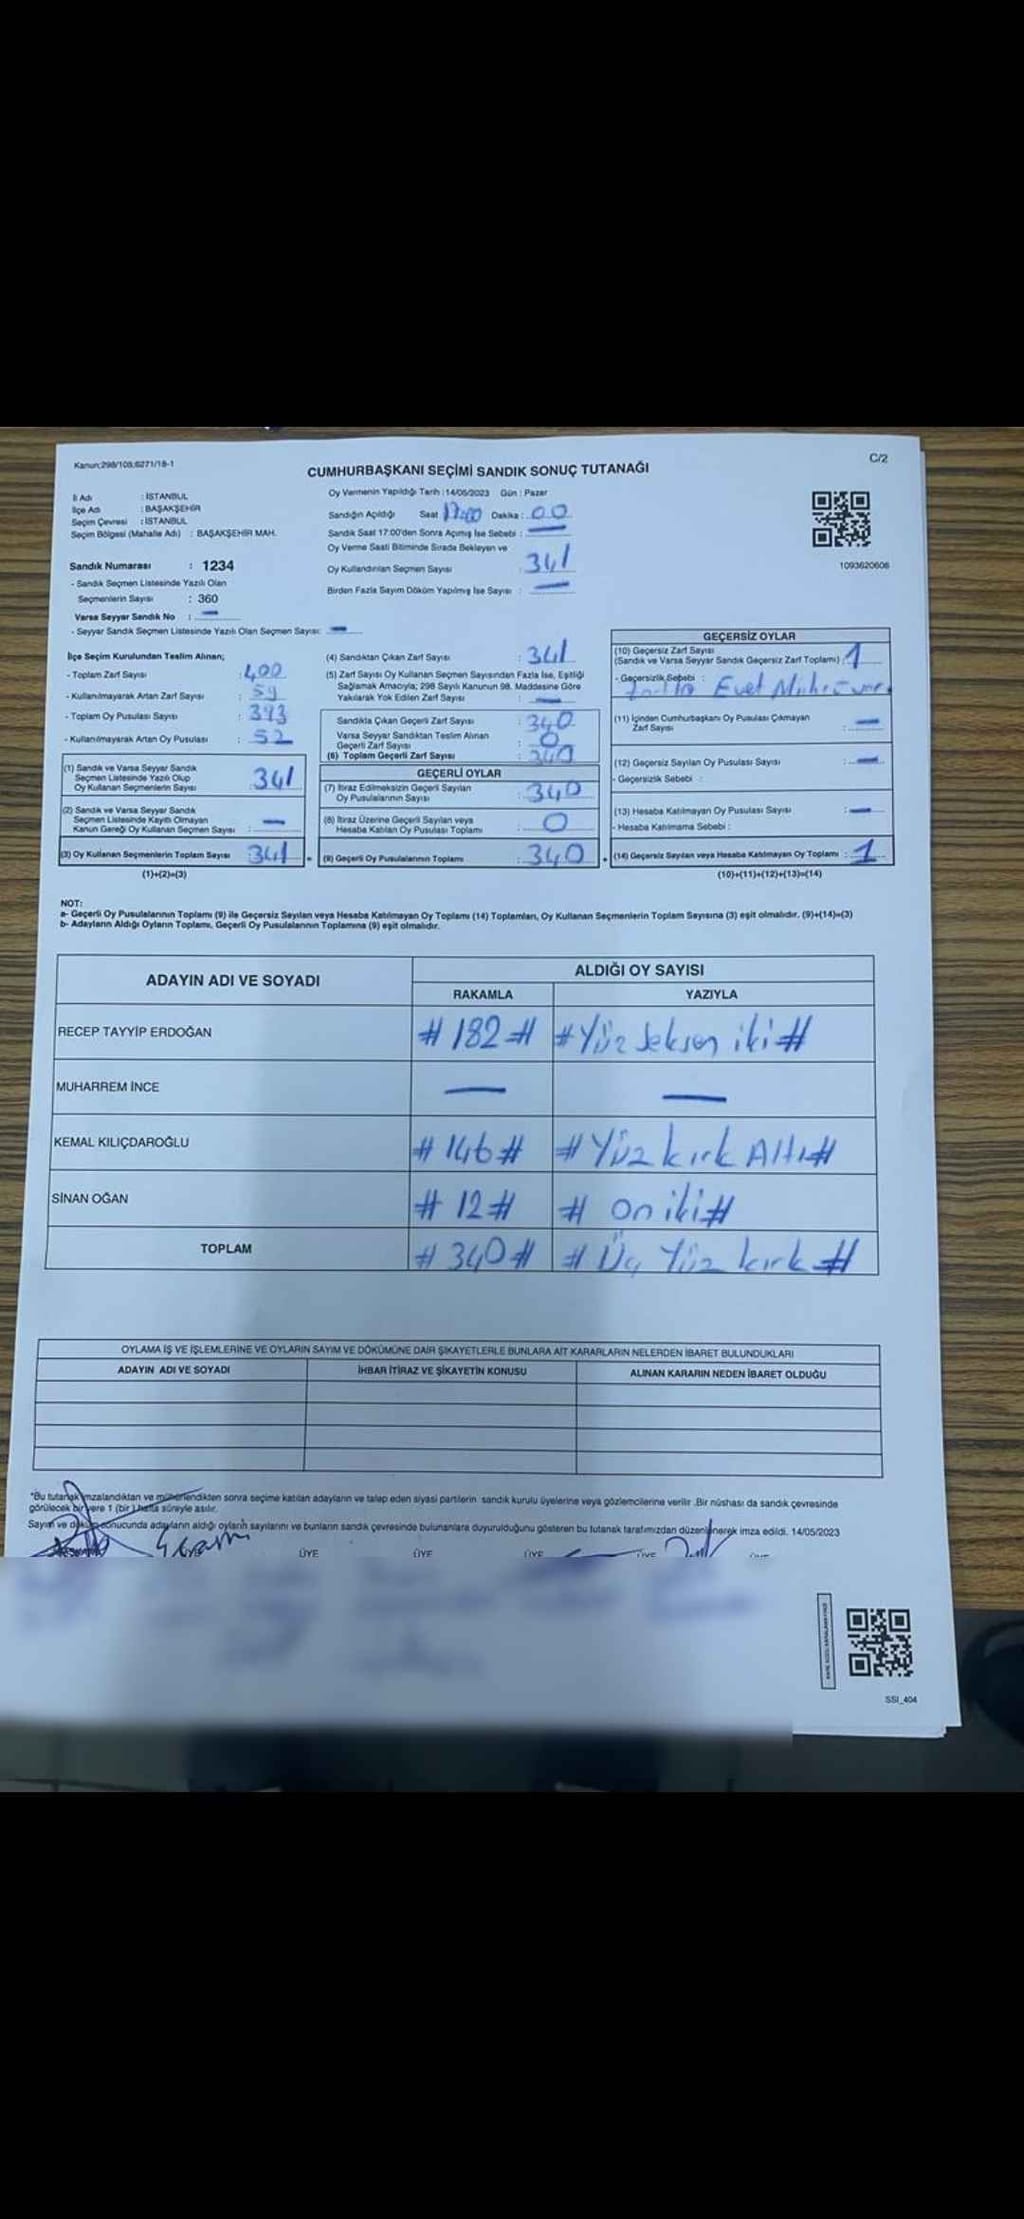 Kanun;298/108;6271/18-1
C/2
CUMHURBAŞKANI SEÇİMİ SANDIK SONUÇ TUTANAĞI
İl Adı : İSTANBUL
İlçe Adı : BAŞAKŞEHİR
Seçim Çevresi : İSTANBUL
Seçim Bölgesi (Mahalle Adı) : BAŞAKŞEHİR MAH.
Oy Vermenin Yapıldığı Tarih : 14/05/2023 Gün : Pazar
Sandığın Açıldığı Saat 17:00 Dakika : 00
Sandık Saat 17:00'den Sonra Açımış İse Sebebi : —
Oy Verme Saati Bitiminde Sırada Bekleyen ve
Oy Kullandırılan Seçmen Sayısı : 341
Birden Fazla Sayım Döküm Yapılmış İse Sayısı : —
1093620606
Sandık Numarası : 1234
- Sandık Seçmen Listesinde Yazılı Olan
Seçmenlerin Sayısı : 360
Varsa Seyyar Sandık No : —
- Seyyar Sandık Seçmen Listesinde Yazılı Olan Seçmen Sayısı: —
İlçe Seçim Kurulundan Teslim Alınan;
- Toplam Zarf Sayısı : 400
- Kullanılmayarak Artan Zarf Sayısı : 59
- Toplam Oy Pusulası Sayısı : 393
- Kullanılmayarak Artan Oy Pusulası : 52
(1) Sandık ve Varsa Seyyar Sandık
Seçmen Listesinde Yazılı Olup
Oy Kullanan Seçmenlerin Sayısı : 341
(2) Sandık ve Varsa Seyyar Sandık
Seçmen Listesinde Kayıtlı Olmayan
Kanun Gereği Oy Kullanan Seçmen Sayısı : —
(3) Oy Kullanan Seçmenlerin Toplam Sayısı : 341
(1)+(2)=(3)
(4) Sandıktan Çıkan Zarf Sayısı : 341
(5) Zarf Sayısı Oy Kullanan Seçmen Sayısından Fazla İse, Eşitliği
Sağlamak Amacıyla; 298 Sayılı Kanunun 98. Maddesine Göre
Yakılarak Yok Edilen Zarf Sayısı : —
Sandıkta Çıkan Geçerli Zarf Sayısı : 340
Varsa Seyyar Sandıktan Teslim Alınan
Geçerli Zarf Sayısı : 0
(6) Toplam Geçerli Zarf Sayısı : 340
GEÇERLİ OYLAR
(7) İtiraz Edilmeksizin Geçerli Sayılan
Oy Pusulalarının Sayısı : 340
(8) İtiraz Üzerine Geçerli Sayılan veya
Hesaba Katılan Oy Pusulası Toplamı : 0
= (9) Geçerli Oy Pusulalarının Toplamı : 340 +
GEÇERSİZ OYLAR
(10) Geçersiz Zarf Sayısı
(Sandık ve Varsa Seyyar Sandık Geçersiz Zarf Toplamı) : 1
- Geçersizlik Sebebi :
Evet
(11) İçinden Cumhurbaşkanı Oy Pusulası Çıkmayan
Zarf Sayısı : —
(12) Geçersiz Sayılan Oy Pusulası Sayısı : —
- Geçersizlik Sebebi :
(13) Hesaba Katılmayan Oy Pusulası Sayısı : —
- Hesaba Katılmama Sebebi :
(14) Geçersiz Sayılan veya Hesaba Katılmayan Oy Toplamı : 1
(10)+(11)+(12)+(13)=(14)
NOT:
a- Geçerli Oy Pusulalarının Toplamı (9) ile Geçersiz Sayılan veya Hesaba Katılmayan Oy Toplamı (14) Toplamları, Oy Kullanan Seçmenlerin Toplam Sayısına (3) eşit olmalıdır. (9)+(14)=(3)
b- Adayların Aldığı Oyların Toplamı, Geçerli Oy Pusulalarının Toplamına (9) eşit olmalıdır.
ADAYIN ADI VE SOYADI
ALDIĞI OY SAYISI
RAKAMLA YAZIYLA
RECEP TAYYİP ERDOĞAN #182# #Yüz seksen iki#
MUHARREM İNCE — —
KEMAL KILIÇDAROĞLU #146# #Yüz kırk Altı#
SİNAN OĞAN #12# # on iki#
TOPLAM #340# # Üç Yüz kırk #
OYLAMA İŞ VE İŞLEMLERİNE VE OYLARIN SAYIM VE DÖKÜMÜNE DAİR ŞİKAYETLERLE BUNLARA AİT KARARLARIN NELERDEN İBARET BULUNDUKLARI
ADAYIN ADI VE SOYADI İHBAR İTİRAZ VE ŞİKAYETİN KONUSU ALINAN KARARIN NEDEN İBARET OLDUĞU
"Bu tutanak imzalandıktan ve mühürlendikten sonra seçime katılan adayların ve talep eden siyasi partilerin sandık kurulu üyelerine veya gözlemcilerine verilir .Bir nüshası da sandık çevresinde
görülecek bir yere 1 (bir) hafta süreyle asılır.
Sayım ve döküm sonucunda adayların aldığı oyların sayılarını ve bunların sandık çevresinde bulunanlara duyurulduğunu gösteren bu tutanak tarafımızdan düzenlenerek imza edildi. 14/05/2023
ÜYE ÜYE ÜYE ÜYE ÜYE
SSI_404